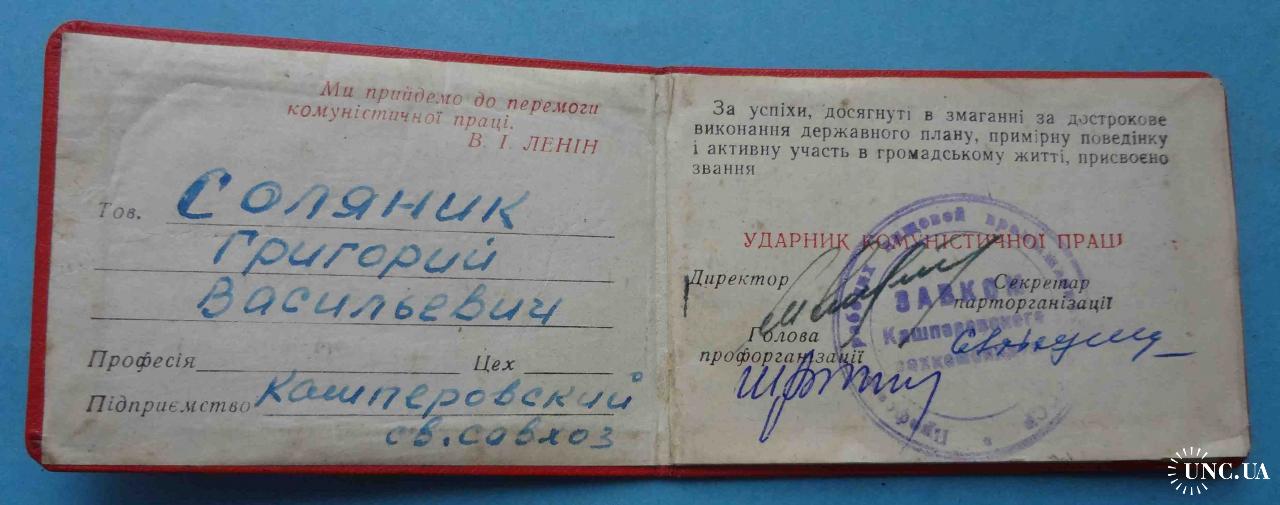 Ми прийдемо до перемоги
комуністичної праці.
В. І. ЛЕНІН
Тов. Соляник
Григорий
Васильевич
Професія Цех
Підприємство Кашперовский
св. савхоз
За успіхи, досягнуті в змаганні за дострокове
виконання державного плану, примірну поведінку
і активну участь в громадському житті, присвоєно
звання
УДАРНИК КОМУНІСТИЧНОЇ ПРАЦІ
Директор
Секретар
парторганізації
Голова
профорганізації
рабочих пищевой
ЗАВКОМ
Кашперовского
UNC.UA